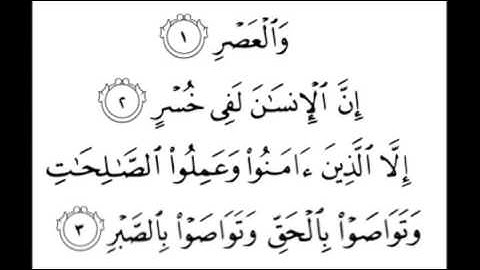 وَٱلۡعَصۡرِ ١
إِنَّ ٱلۡإِنسَٰنَ لَفِي خُسۡرٍ ٢
إِلَّا ٱلَّذِينَ ءَامَنُواْ وَعَمِلُواْ ٱلصَّٰلِحَٰتِ
وَتَوَاصَوۡاْ بِٱلۡحَقِّ وَتَوَاصَوۡاْ بِٱلصَّبۡرِ ٣